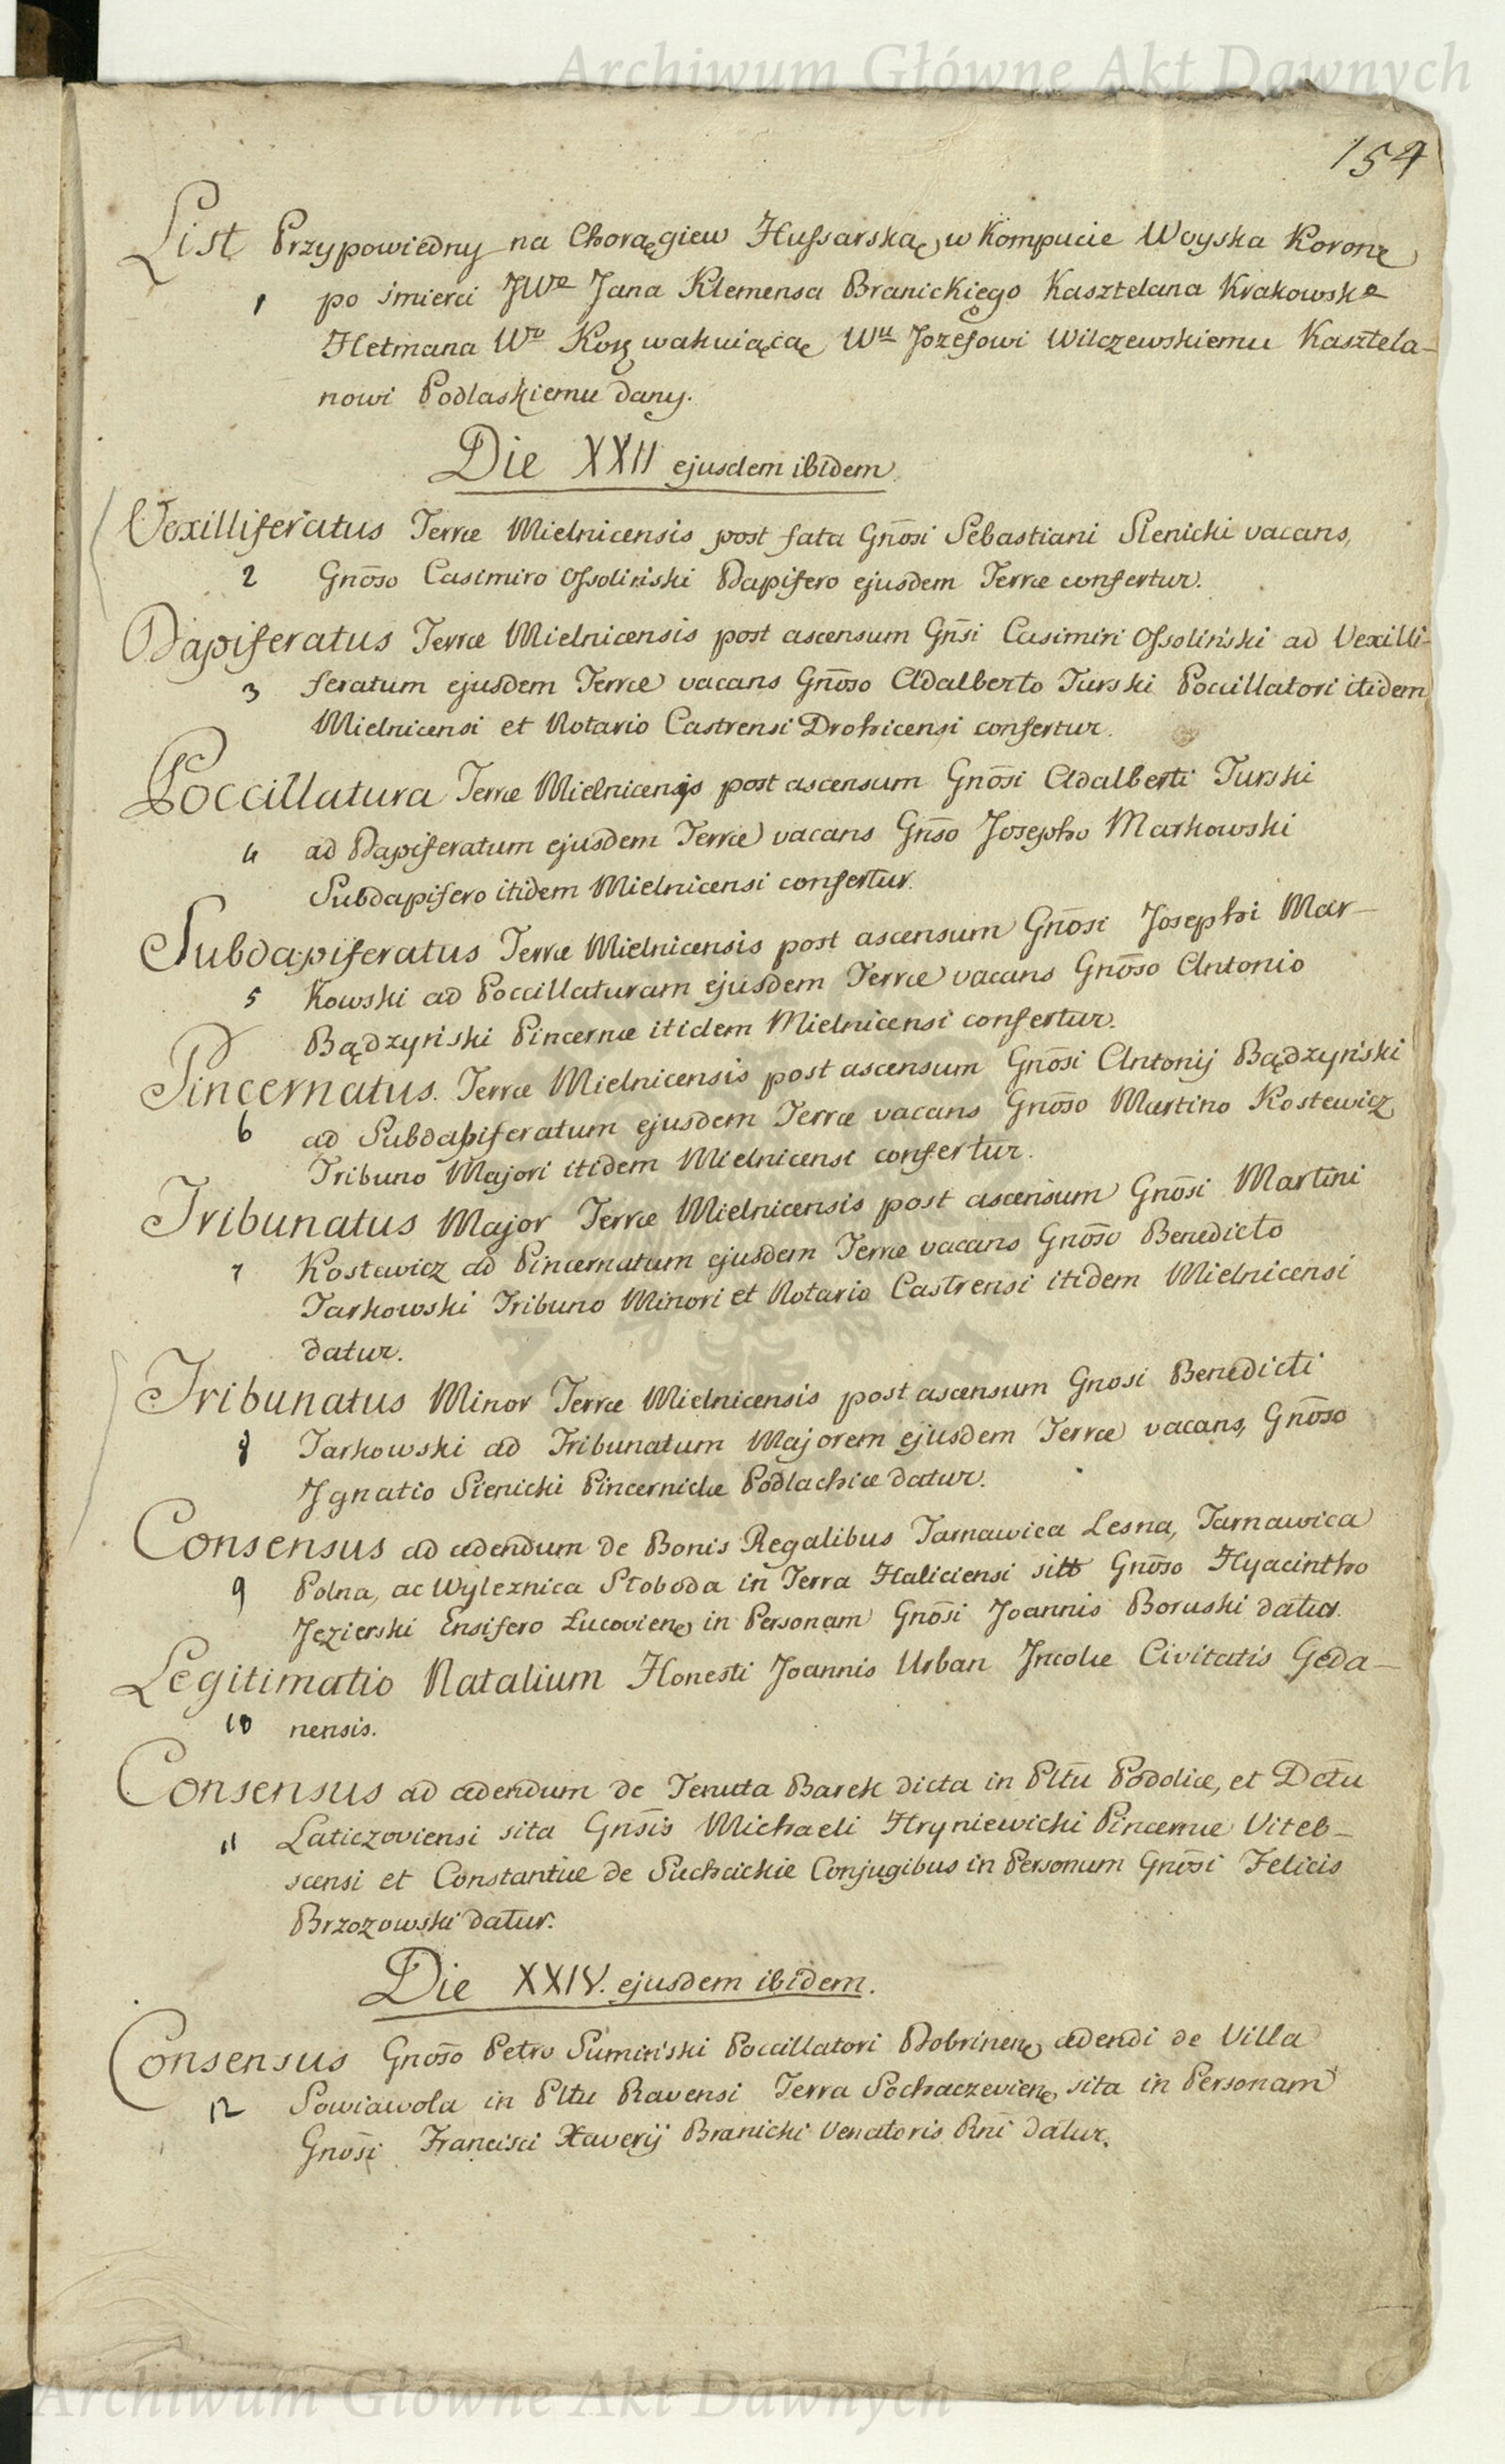 Archiwum Główne Akt Dawnych
154
List Przypowiedny na Chorągiew Hussarską w Kompucie Woyska Koronę
1 po śmierci JWo Jana Klemensa Branickiego Kasztelana Krakowsko
Hetmana Wo Korę wakuiącą Wu Jozefowi Wilczewskiemu Kasztela-
nowi Podlaskiemu dany.
Die XXII ejusdem ibidem
Vexilliferatus Terræ Mielnicensis post fata Gnōsi Sebastiani Sienicki vacans,
2 Gnōso Casimiro Ossoliński Dapifero ejusdem Terræ confertur.
Dapiferatus Terræ Mielnicensis post ascensum Gn̄si Casimiri Ossoliński ad Vexilli-
3 feratum ejusdem Terræ vacans Gnōso Adalberto Turski Poccillatori itidem
Mielnicensi et Notario Castrensi Drohicensi confertur.
Poccillatura Terræ Mielnicensis post ascensum Gnōsi Adalberti Turski
4 ad Dapiferatum ejusdem Terræ vacans Gn̄so Josepho Markowski
Subdapifero itidem Mielnicensi confertur.
Subdapiferatus Terræ Mielnicensis post ascensum Gnōsi Josephi Mar-
5 Kowski ad Poccillaturam ejusdem Terræ vacans Gnōso Antonio
Bądzyński Pincernæ itidem Mielnicensi confertur.
Pincernatus. Terræ Mielnicensis post ascensum Gnōsi Antonij Bądzyński
6 ad Subdapiferatum ejusdem Terræ vacans Gnōso Martino Kostewicz
Tribuno Majori itidem Mielnicensi confertur.
Tribunatus Major Terræ Mielnicensis post ascensum Gnōsi Martini
7 Kostewicz ad Pincernatum ejusdem Terræ vacans Gnōso Benedicto
Tarkowski Tribuno Minori et Notario Castrensi itidem Mielnicensi
datur.
Tribunatus Minor Terræ Mielnicensis post ascensum Gnosi Benedicti
8 Tarkowski ad Tribunatum Majorem ejusdem Terræ vacans, Gnōso
Jgnatio Sienicki Pincernidæ Podlachiæ datur.
Consensus ad cedendum de Bonis Regalibus Tarnawica Lesna, Tarnawica
9 Polna, ac Wyleznica Słoboda in Terra Haliciensi sitis Gnōso Hyacintho
Jezierski Ensifero Łucovienę in Personam Gnōsi Joannis Boruski datur.
Legitimatio Natalium Honesti Joannis Urban Jncolæ Civitatis Geda-
10 nensis.
Consensus ad cedendum de Tenuta Barek dicta in Pltū Podoliæ, et Dctū
11 Laticzoviensi sita Gnōsis Michaeli Hryniewicki Pincernæ Viteb-
scensi et Constantiæ de Suchcickie Conjugibus in Personum Gnōsi Felicis
Brzozowski datur.
Die XXIV. ejusdem ibidem.
Consensus Gnōso Petro Sumiński Poccillatori Dobrinenę cedendi de Villa
12 Sowiawola in Pltu Ravensi Terra Sochaczevienę sita in Personam
Gnōsi Francisci Xaverij Branicki Venatoris Rnī datur.
Archiwum Główne Akt Dawnych